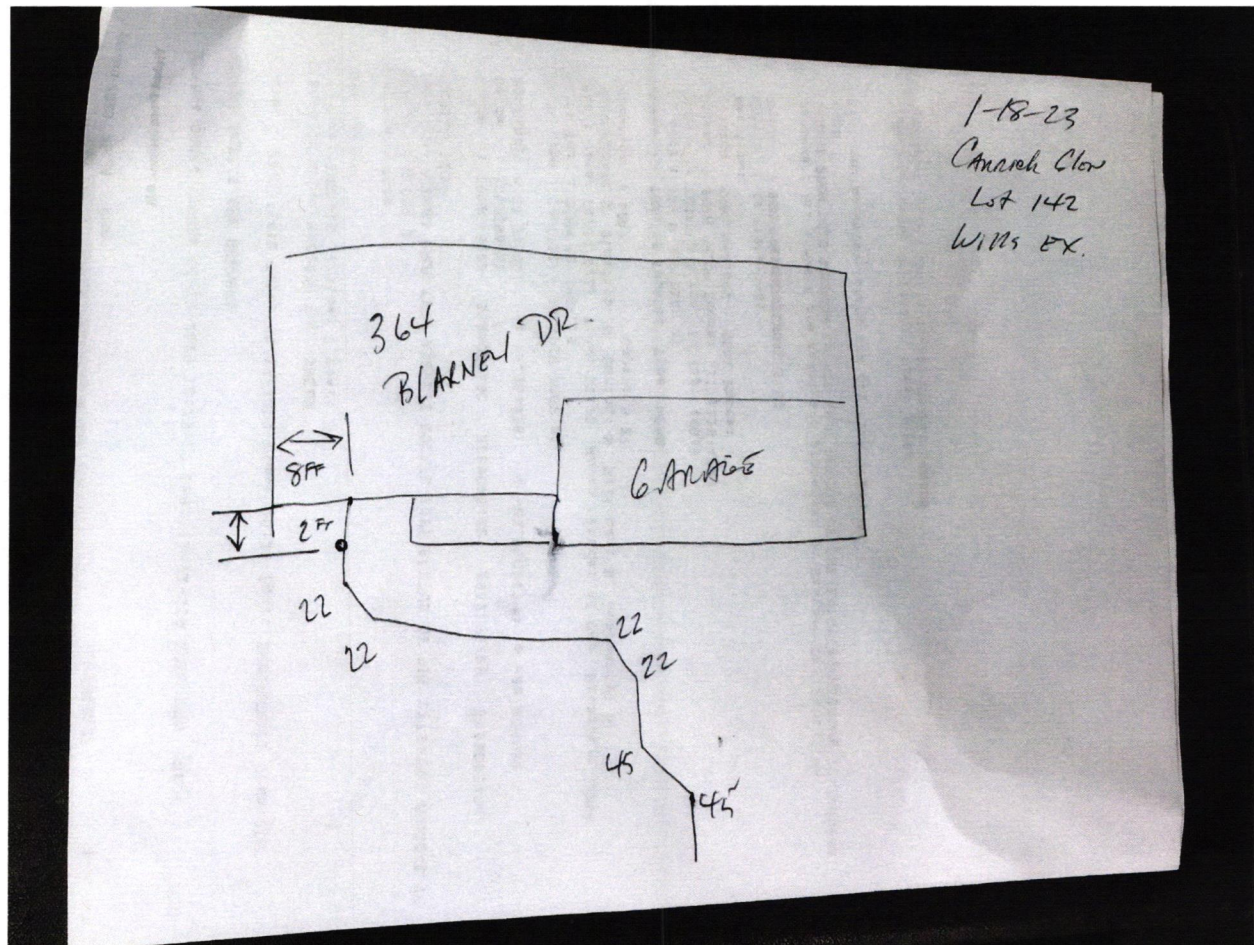 1-18-23
Carrick Glen
Lot 142
Wills Ex.
364
BLARNEY DR
GARAGE
8 FT
2 FT
22
22
22
22
45
45